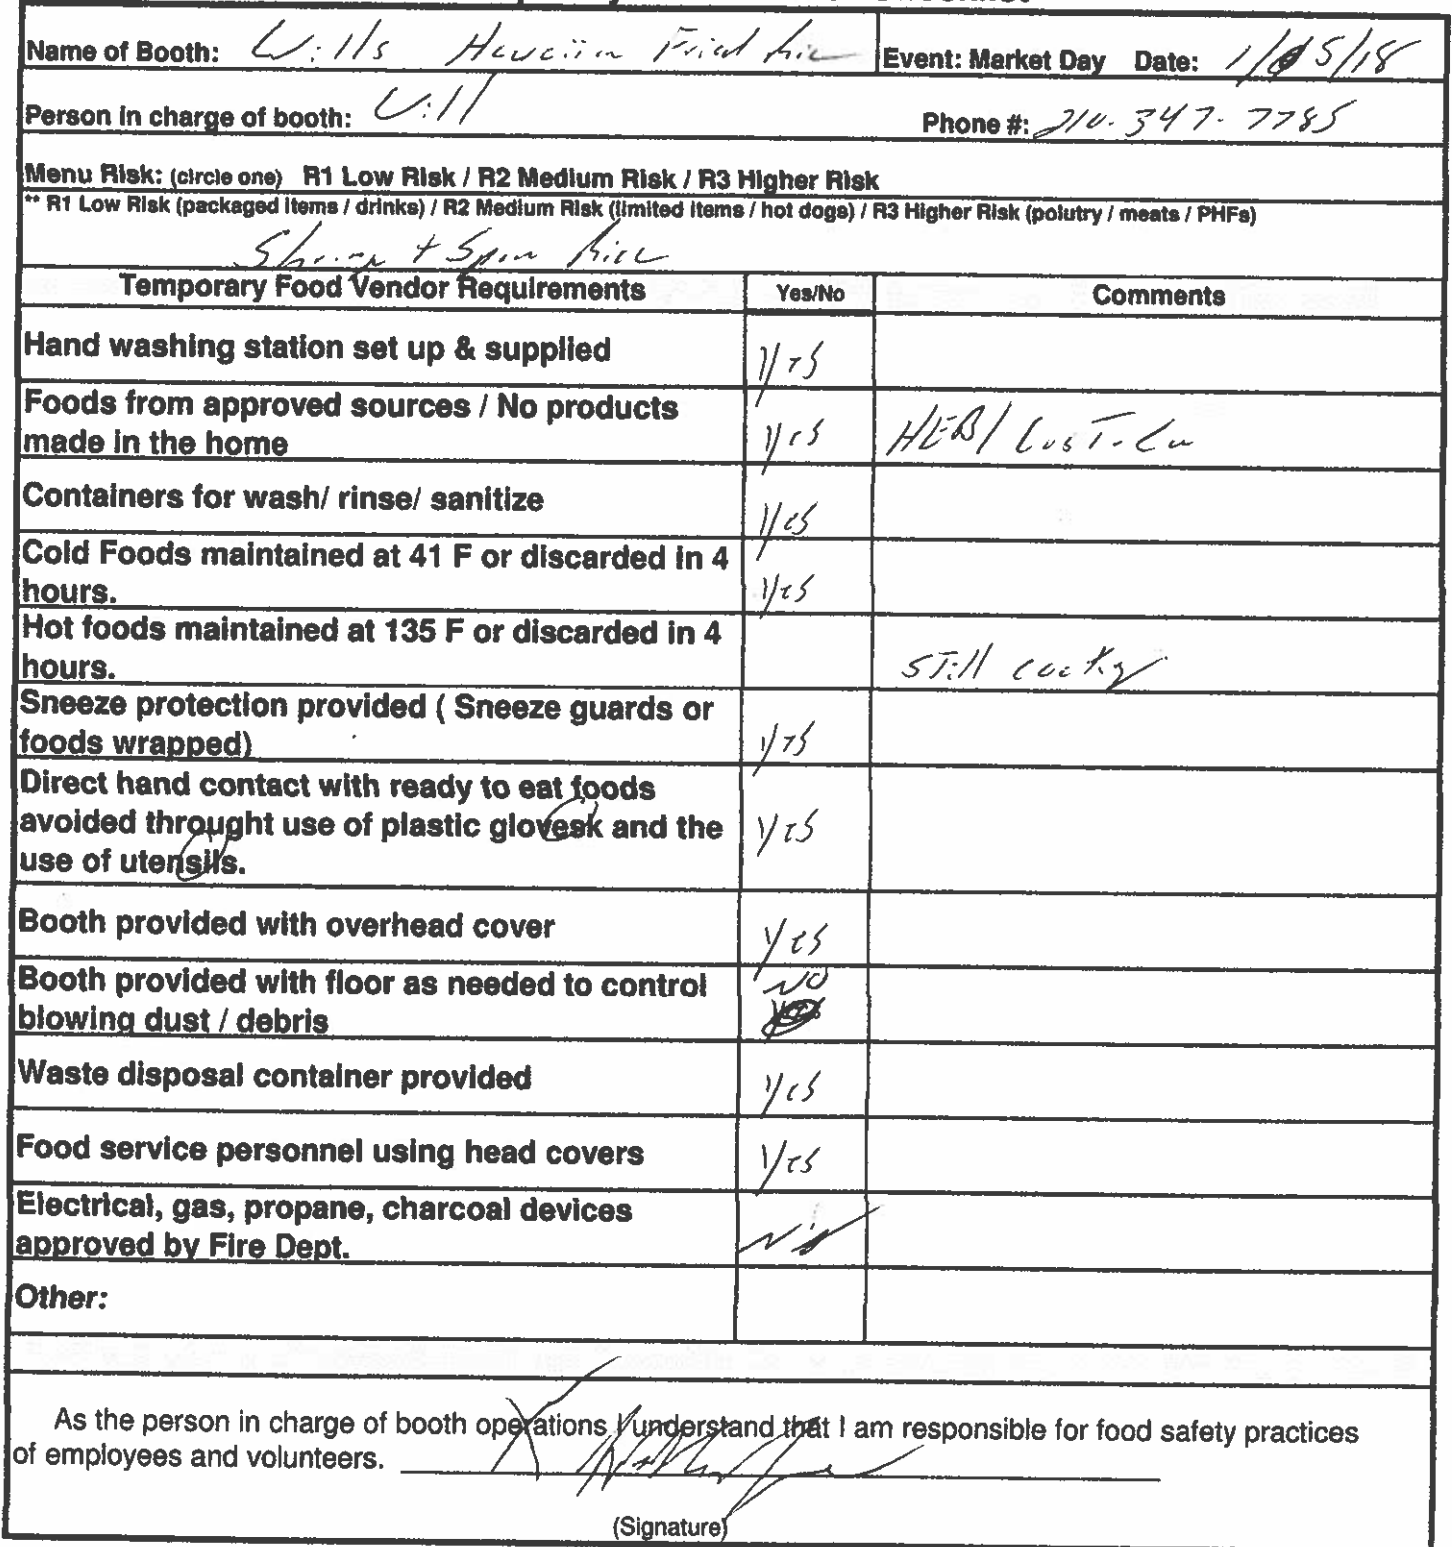 Name of Booth: Wills Hawaiian Fried Ric Event: Market Day Date: 1/05/18
Person in charge of booth: Will Phone #: 210-347-7785
Menu Risk: (circle one) R1 Low Risk / R2 Medium Risk / R3 Higher Risk
** R1 Low Risk (packaged items / drinks) / R2 Medium Risk (limited items / hot dogs) / R3 Higher Risk (polutry / meats / PHFs)
Shrimp + Spam Rice
Temporary Food Vendor Requirements Yes/No Comments
Hand washing station set up & supplied Yes
Foods from approved sources / No products
made in the home Yes HEB/ CosT-Co
Containers for wash/ rinse/ sanitize Yes
Cold Foods maintained at 41 F or discarded in 4
hours. Yes
Hot foods maintained at 135 F or discarded in 4
hours. STill
Sneeze protection provided ( Sneeze guards or
foods wrapped) Yes
Direct hand contact with ready to eat foods
avoided throught use of plastic glovesk and the Yes
use of utensils.
Booth provided with overhead cover Yes
Booth provided with floor as needed to control NO
blowing dust / debris
Waste disposal container provided Yes
Food service personnel using head covers Yes
Electrical, gas, propane, charcoal devices
approved by Fire Dept.
Other:
As the person in charge of booth operations I understand that I am responsible for food safety practices
of employees and volunteers. X
(Signature)